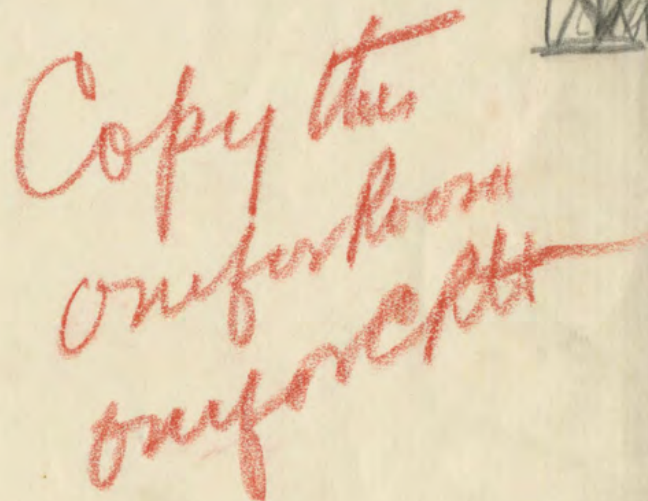 Copy this
one for Room
one for CRH